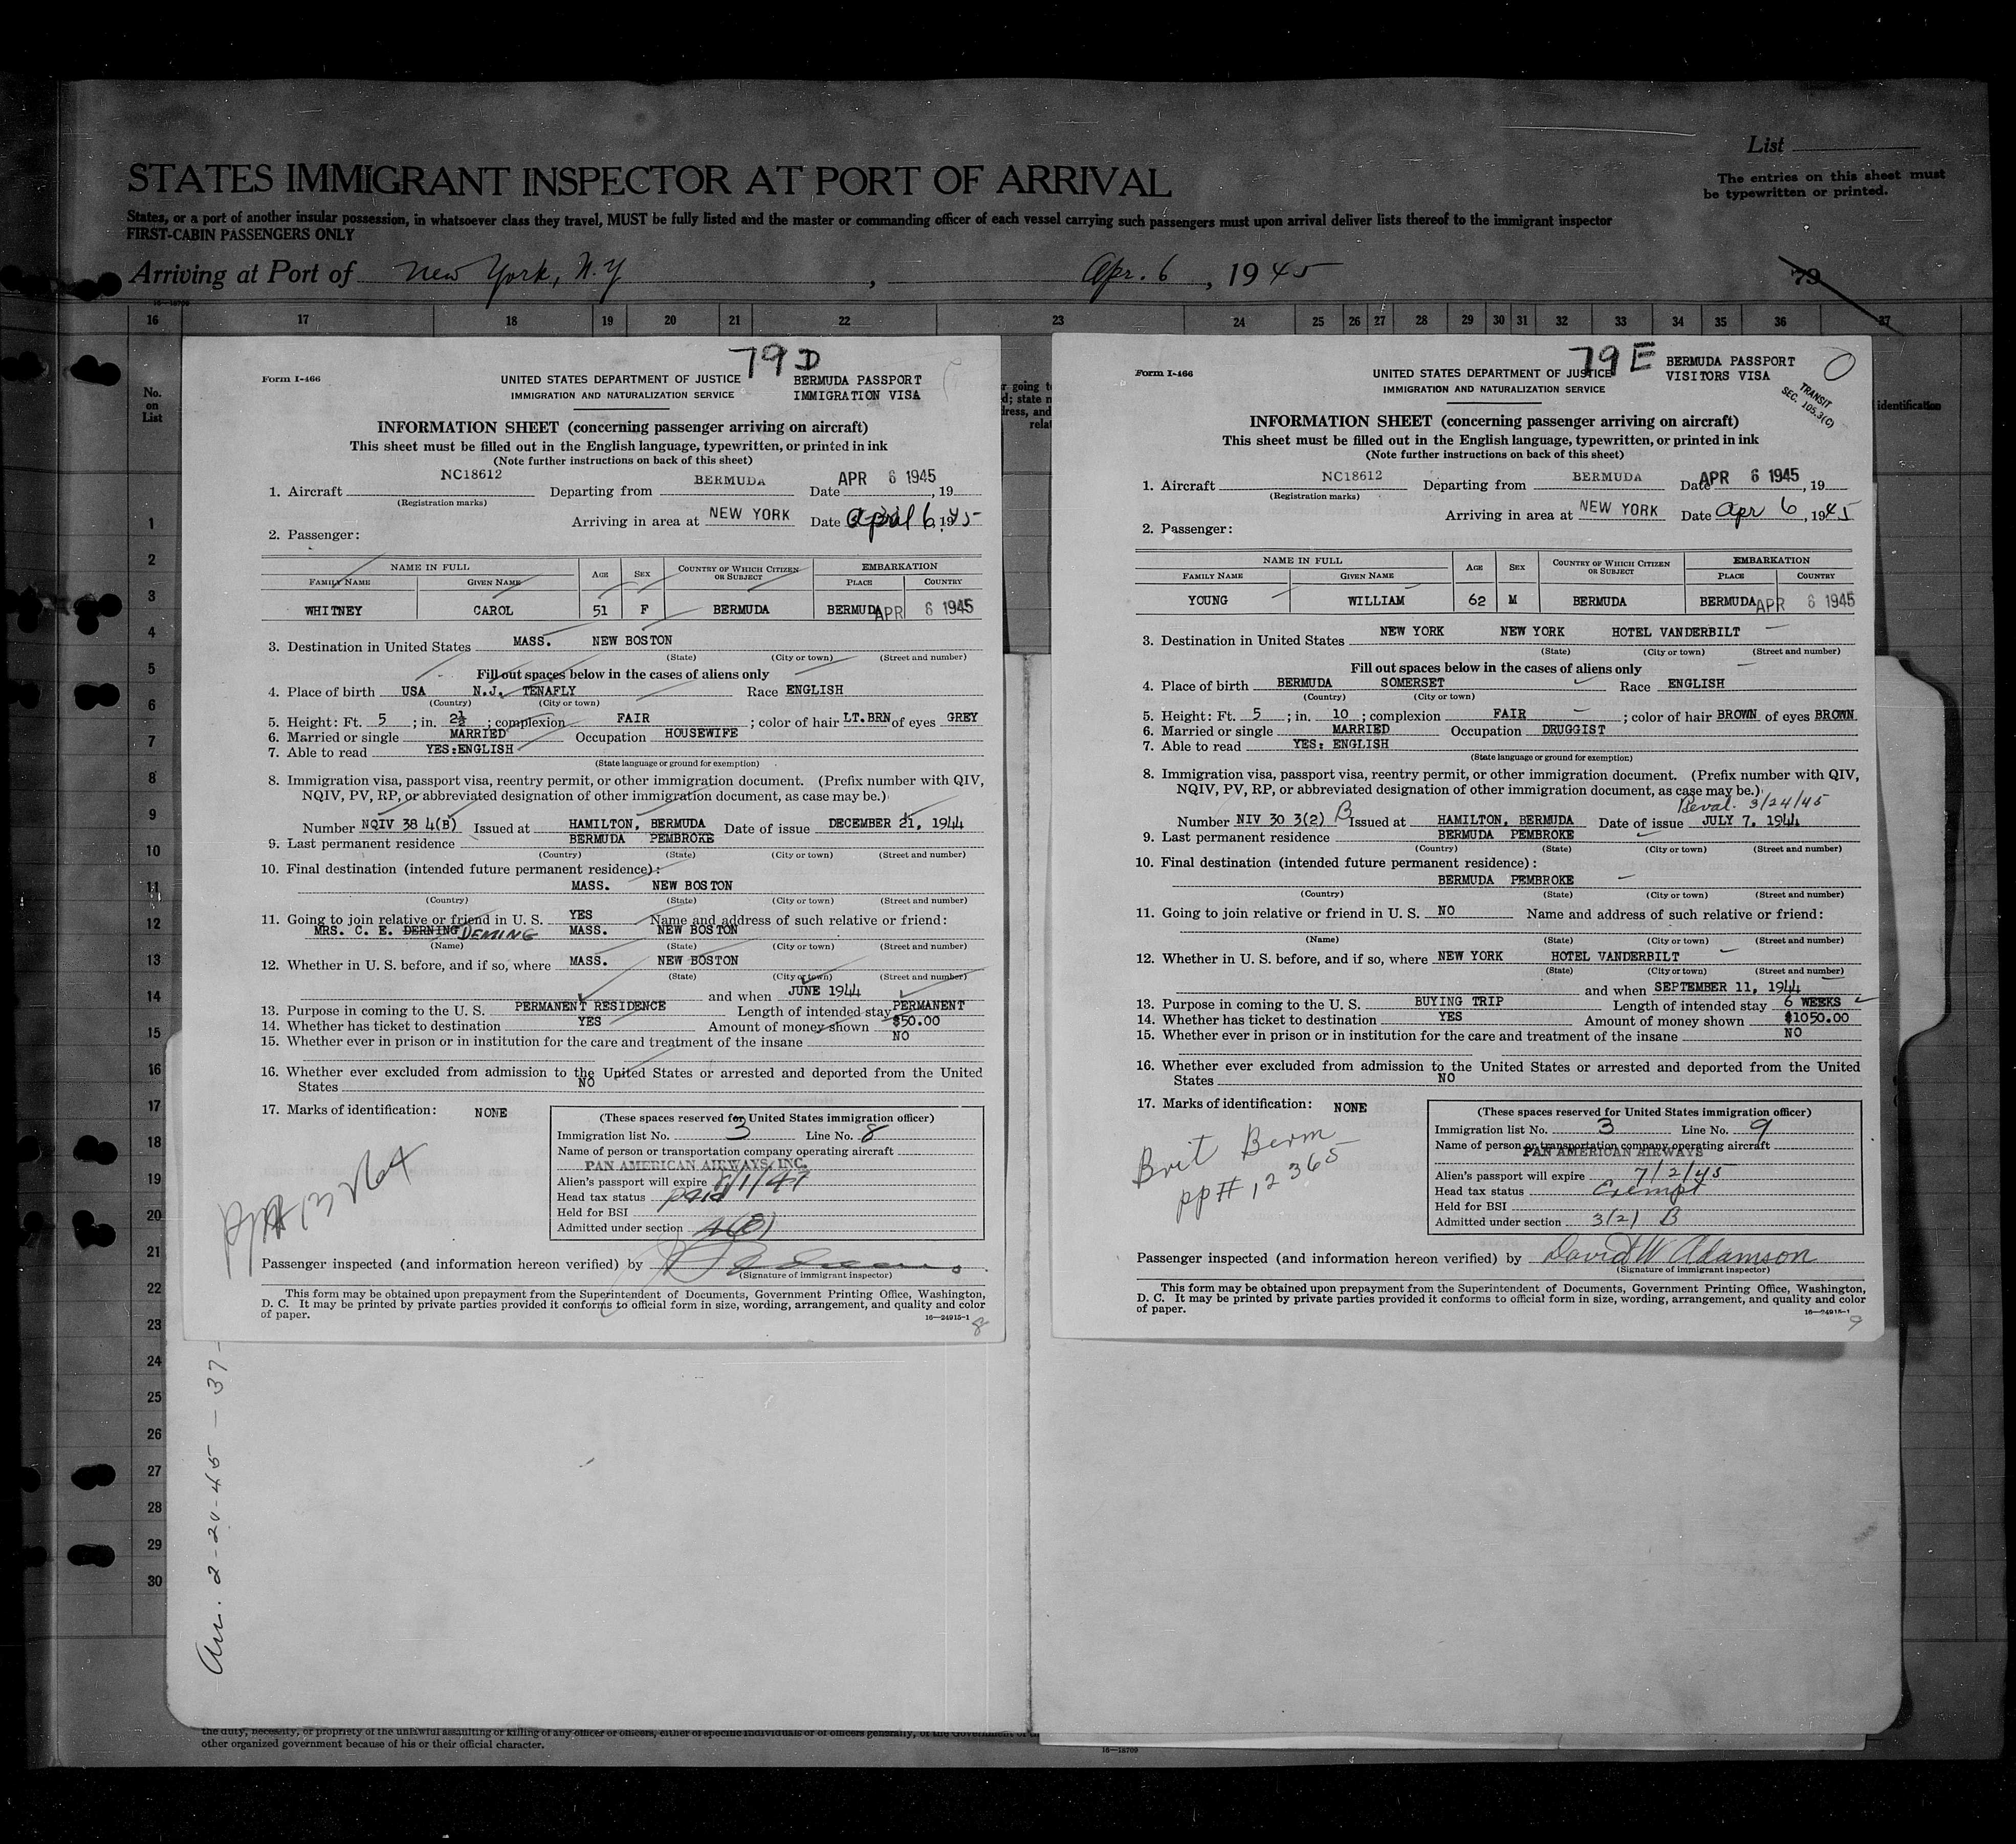 List
The entries on this sheet must
be typewritten or printed.
STATES IMMIGRANT INSPECTOR AT PORT OF ARRIVAL
States, or a port of another insular possession, in whatsoever class they travel, MUST be fully listed and the master or commanding officer of each vessel carrying such passengers must upon arrival deliver lists thereof to the immigrant inspector
FIRST-CABIN PASSENGERS ONLY
Arriving at Port of New York, N.Y , Apr. 6 , 1945
79
16—18709
16 17 18 19 20 21 22 23 24 25 26 27 28 29 30 31 32 33 34 35 36 37
No.
on
List
identification
1
2
3
4
5
6
7
8
9
10
11
12
13
14
15
16
17
18
19
20
21
22
23
24
25
26
27
28
29
30
79D
Form I-466
UNITED STATES DEPARTMENT OF JUSTICE
BERMUDA PASSPORT
IMMIGRATION AND NATURALIZATION SERVICE
IMMIGRATION VISA
INFORMATION SHEET (concerning passenger arriving on aircraft)
This sheet must be filled out in the English language, typewritten, or printed in ink
(Note further instructions on back of this sheet)
1. Aircraft NC18612 Departing from BERMUDA Date APR 6 1945 , 19
(Registration marks)
Arriving in area at NEW YORK Date April 6, 1945
2. Passenger:
NAME IN FULL AGE SEX COUNTRY OF WHICH CITIZEN OR SUBJECT EMBARKATION
FAMILY NAME GIVEN NAME PLACE COUNTRY
WHITNEY CAROL 51 F BERMUDA BERMUDA APR 6 1945
3. Destination in United States MASS. NEW BOSTON
(State) (City or town) (Street and number)
Fill out spaces below in the cases of aliens only
4. Place of birth USA N.J. TENAFLY Race ENGLISH
(Country) (City or town)
5. Height: Ft. 5 ; in. 2½ ; complexion FAIR ; color of hair LT.BRN of eyes GREY
6. Married or single MARRIED Occupation HOUSEWIFE
7. Able to read YES:ENGLISH
(State language or ground for exemption)
8. Immigration visa, passport visa, reentry permit, or other immigration document. (Prefix number with QIV,
NQIV, PV, RP, or abbreviated designation of other immigration document, as case may be.)
Number NQIV 38 4(B) Issued at HAMILTON, BERMUDA Date of issue DECEMBER 21, 1944
9. Last permanent residence BERMUDA PEMBROKE
(Country) (State) (City or town) (Street and number)
10. Final destination (intended future permanent residence):
MASS. NEW BOSTON
(Country) (State) (City or town) (Street and number)
11. Going to join relative or friend in U. S. YES Name and address of such relative or friend:
MRS. C. E. DERNING DEMING MASS. NEW BOSTON
(Name) (State) (City or town) (Street and number)
12. Whether in U. S. before, and if so, where MASS. NEW BOSTON
(State) (City or town) (Street and number)
and when JUNE 1944
13. Purpose in coming to the U. S. PERMANENT RESIDENCE Length of intended stay PERMANENT
14. Whether has ticket to destination YES Amount of money shown $50.00
15. Whether ever in prison or in institution for the care and treatment of the insane NO
16. Whether ever excluded from admission to the United States or arrested and deported from the United
States NO
17. Marks of identification: NONE
(These spaces reserved for United States immigration officer)
Immigration list No. 3 Line No. 8
Name of person or transportation company operating aircraft
PAN AMERICAN AIRWAYS, INC.
Alien's passport will expire 8/1/47
Head tax status paid
Held for BSI
Admitted under section 4(B)
Passenger inspected (and information hereon verified) by
(Signature of immigrant inspector)
This form may be obtained upon prepayment from the Superintendent of Documents, Government Printing Office, Washington,
D. C. It may be printed by private parties provided it conforms to official form in size, wording, arrangement, and quality and color
of paper.
16—24915-1
8
79E
Form I-466
UNITED STATES DEPARTMENT OF JUSTICE
BERMUDA PASSPORT
IMMIGRATION AND NATURALIZATION SERVICE
VISITORS VISA
TRANSIT
SEC. 105.3(C)
INFORMATION SHEET (concerning passenger arriving on aircraft)
This sheet must be filled out in the English language, typewritten, or printed in ink
(Note further instructions on back of this sheet)
1. Aircraft NC18612 Departing from BERMUDA Date APR 6 1945 , 19
(Registration marks)
Arriving in area at NEW YORK Date Apr 6 , 1945
2. Passenger:
NAME IN FULL AGE SEX COUNTRY OF WHICH CITIZEN OR SUBJECT EMBARKATION
FAMILY NAME GIVEN NAME PLACE COUNTRY
YOUNG WILLIAM 62 M BERMUDA BERMUDA APR 6 1945
3. Destination in United States NEW YORK NEW YORK HOTEL VANDERBILT
(State) (City or town) (Street and number)
Fill out spaces below in the cases of aliens only
4. Place of birth BERMUDA SOMERSET Race ENGLISH
(Country) (City or town)
5. Height: Ft. 5 ; in. 10 ; complexion FAIR ; color of hair BROWN of eyes BROWN
6. Married or single MARRIED Occupation DRUGGIST
7. Able to read YES: ENGLISH
(State language or ground for exemption)
8. Immigration visa, passport visa, reentry permit, or other immigration document. (Prefix number with QIV,
NQIV, PV, RP, or abbreviated designation of other immigration document, as case may be.)
Reval. 3/24/45
Number NIV 30 3(2) B Issued at HAMILTON, BERMUDA Date of issue JULY 7, 1944
9. Last permanent residence BERMUDA PEMBROKE
(Country) (State) (City or town) (Street and number)
10. Final destination (intended future permanent residence):
BERMUDA PEMBROKE
(Country) (State) (City or town) (Street and number)
11. Going to join relative or friend in U. S. NO Name and address of such relative or friend:
(Name) (State) (City or town) (Street and number)
12. Whether in U. S. before, and if so, where NEW YORK HOTEL VANDERBILT
(State) (City or town) (Street and number)
and when SEPTEMBER 11, 1944
13. Purpose in coming to the U. S. BUYING TRIP Length of intended stay 6 WEEKS
14. Whether has ticket to destination YES Amount of money shown $1050.00
15. Whether ever in prison or in institution for the care and treatment of the insane NO
16. Whether ever excluded from admission to the United States or arrested and deported from the United
States NO
17. Marks of identification: NONE
Brit Berm
pp# 12365
(These spaces reserved for United States immigration officer)
Immigration list No. 3 Line No. 9
Name of person or transportation company operating aircraft
PAN AMERICAN AIRWAYS
Alien's passport will expire 7/2/45
Head tax status Exempt
Held for BSI
Admitted under section 3(2) B
Passenger inspected (and information hereon verified) by David W Adamson
(Signature of immigrant inspector)
This form may be obtained upon prepayment from the Superintendent of Documents, Government Printing Office, Washington,
D. C. It may be printed by private parties provided it conforms to official form in size, wording, arrangement, and quality and color
of paper.
16—24915-1
9
the duty, necessity, or propriety of the unlawful assaulting or killing of any officer or officers, either of specific individuals or of officers generally, of the Government of
other organized government because of his or their official character.
16—18709